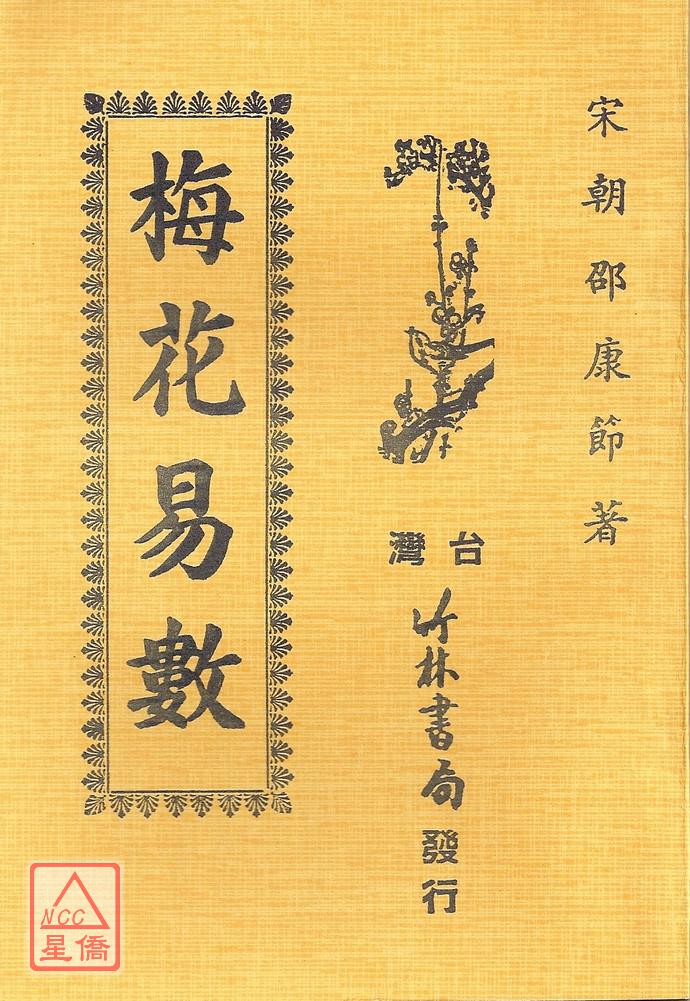 宋朝邵康節著
台灣
竹林書局
發行
梅花易數
NCC
星僑